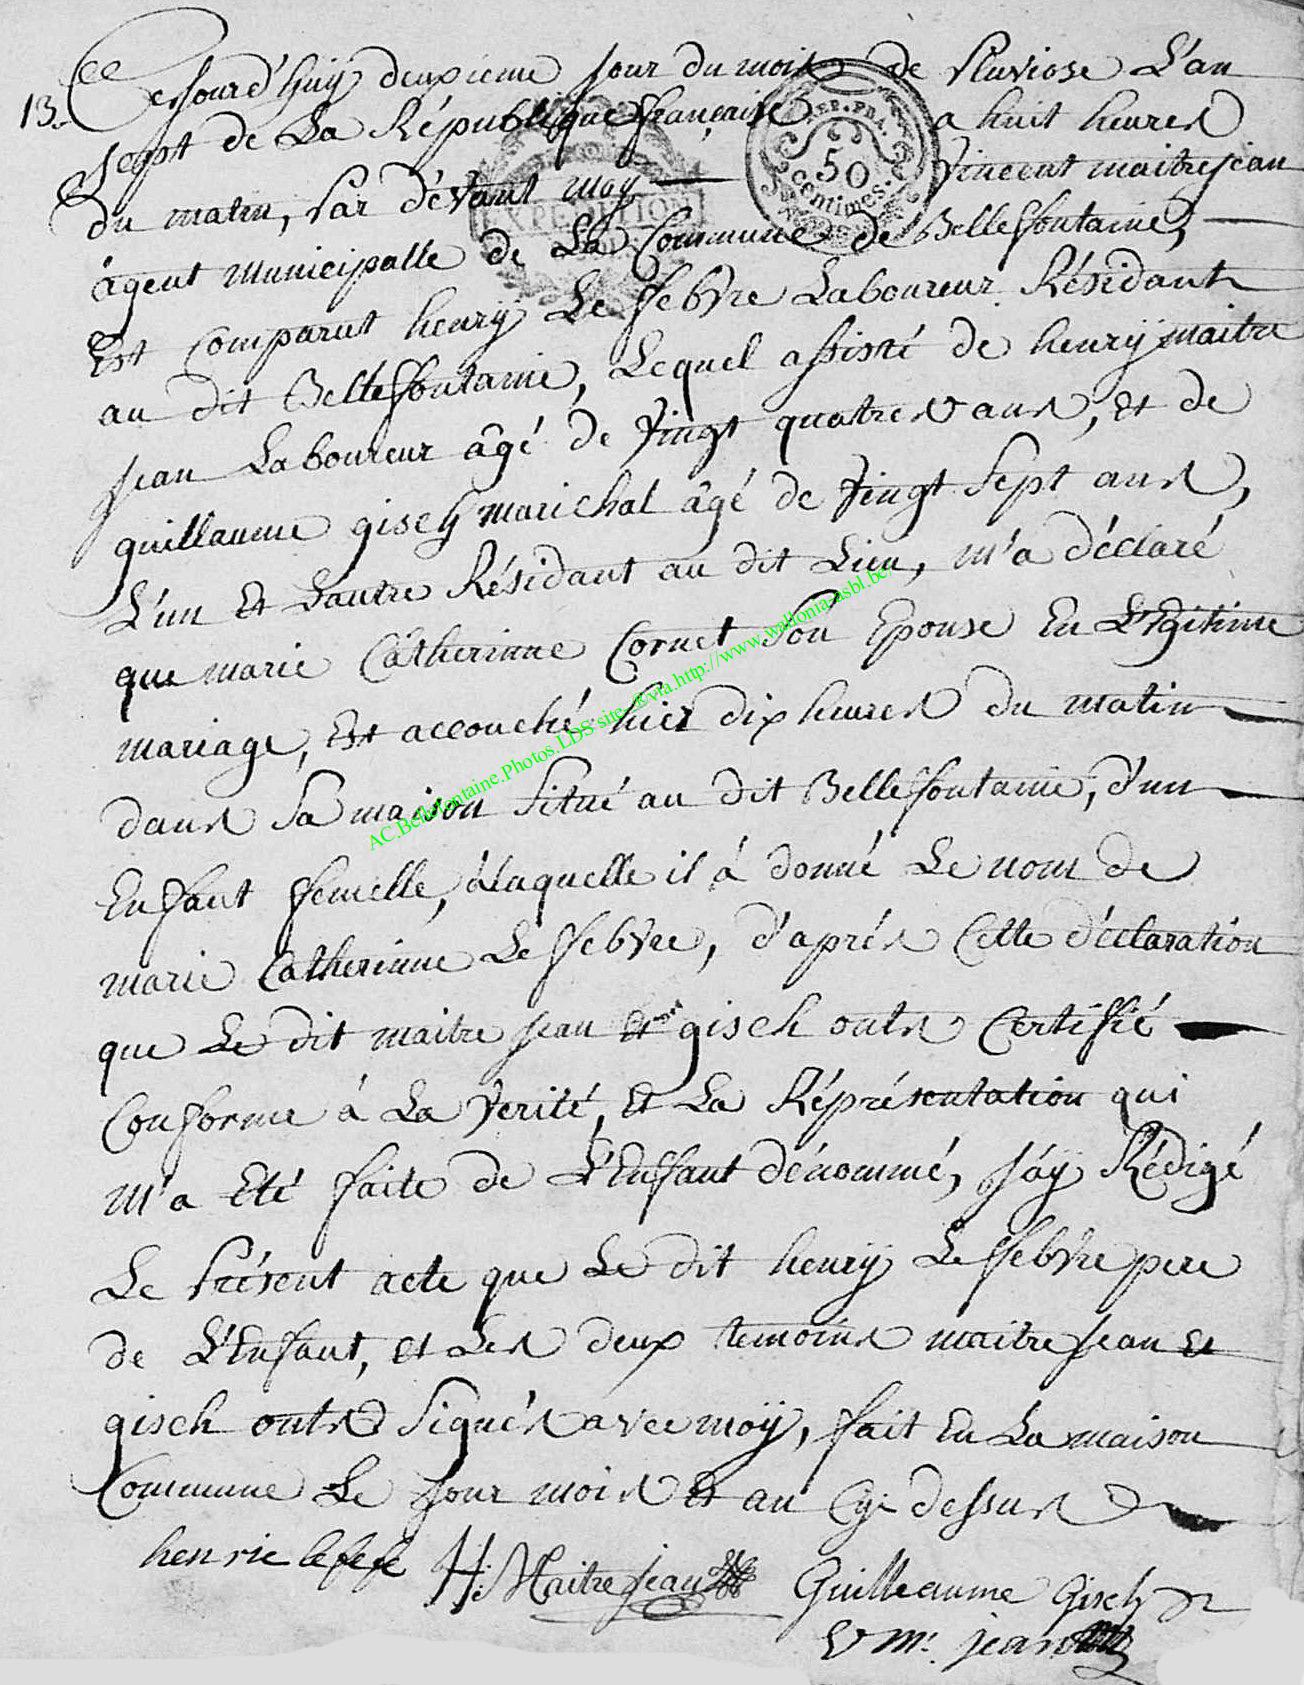 13. Cejourd'huÿ deuxieme jour du mois de Pluviose L'an
Sept de La République française a huit heures
du matin, Par dévant moÿ Vincent maitrejean
agent Municipalle de La Commune de Bellefontaine,
Est Comparut henrÿ Le febvre Laboureur Résidant
au dit Bellefontaine, Lequel assisté de henrÿ maitre
jean Laboureur âgé de Vingt quatres ans, et de
guillaume gisch marichal âgé de Vingt Sept ans,
L'un Et Lautre Résidant au dit Lieu, m'a déclaré
que marie Catherinne Cornet Son Epouse En LEgitime
mariage, Est accouché hier dix heures du matin
dans Sa maison Situé au dit Bellefontaine, d'un
Enfant femelle, àlaquelle il à donné Le nom de
marie Catherinne Le febvre, d'aprés Cette déclaration
que Le dit maitre jean Et gisch onts Certifié
Conforme à La Verité, Et La Répréséntation qui
m'a Eté faite de L'Enfant dénommé, j'aÿ Rédigé
Le Présent acte que Le dit henrÿ Le febvre pere
de L'Enfant, et Les deux temoins maitre jean Et
gisch onts Signés avec moÿ, fait En La maison
Commune Le jour mois Et an Cy dessus
henrie lefefe H: Maitrejean Guilleaume Gisch
V M. jean
REP. FRA.
50
centimes.
EXPEDITION
AC.Bellefontaine.Photos.LDS-site-®via.http://www.wallonia-asbl.be/